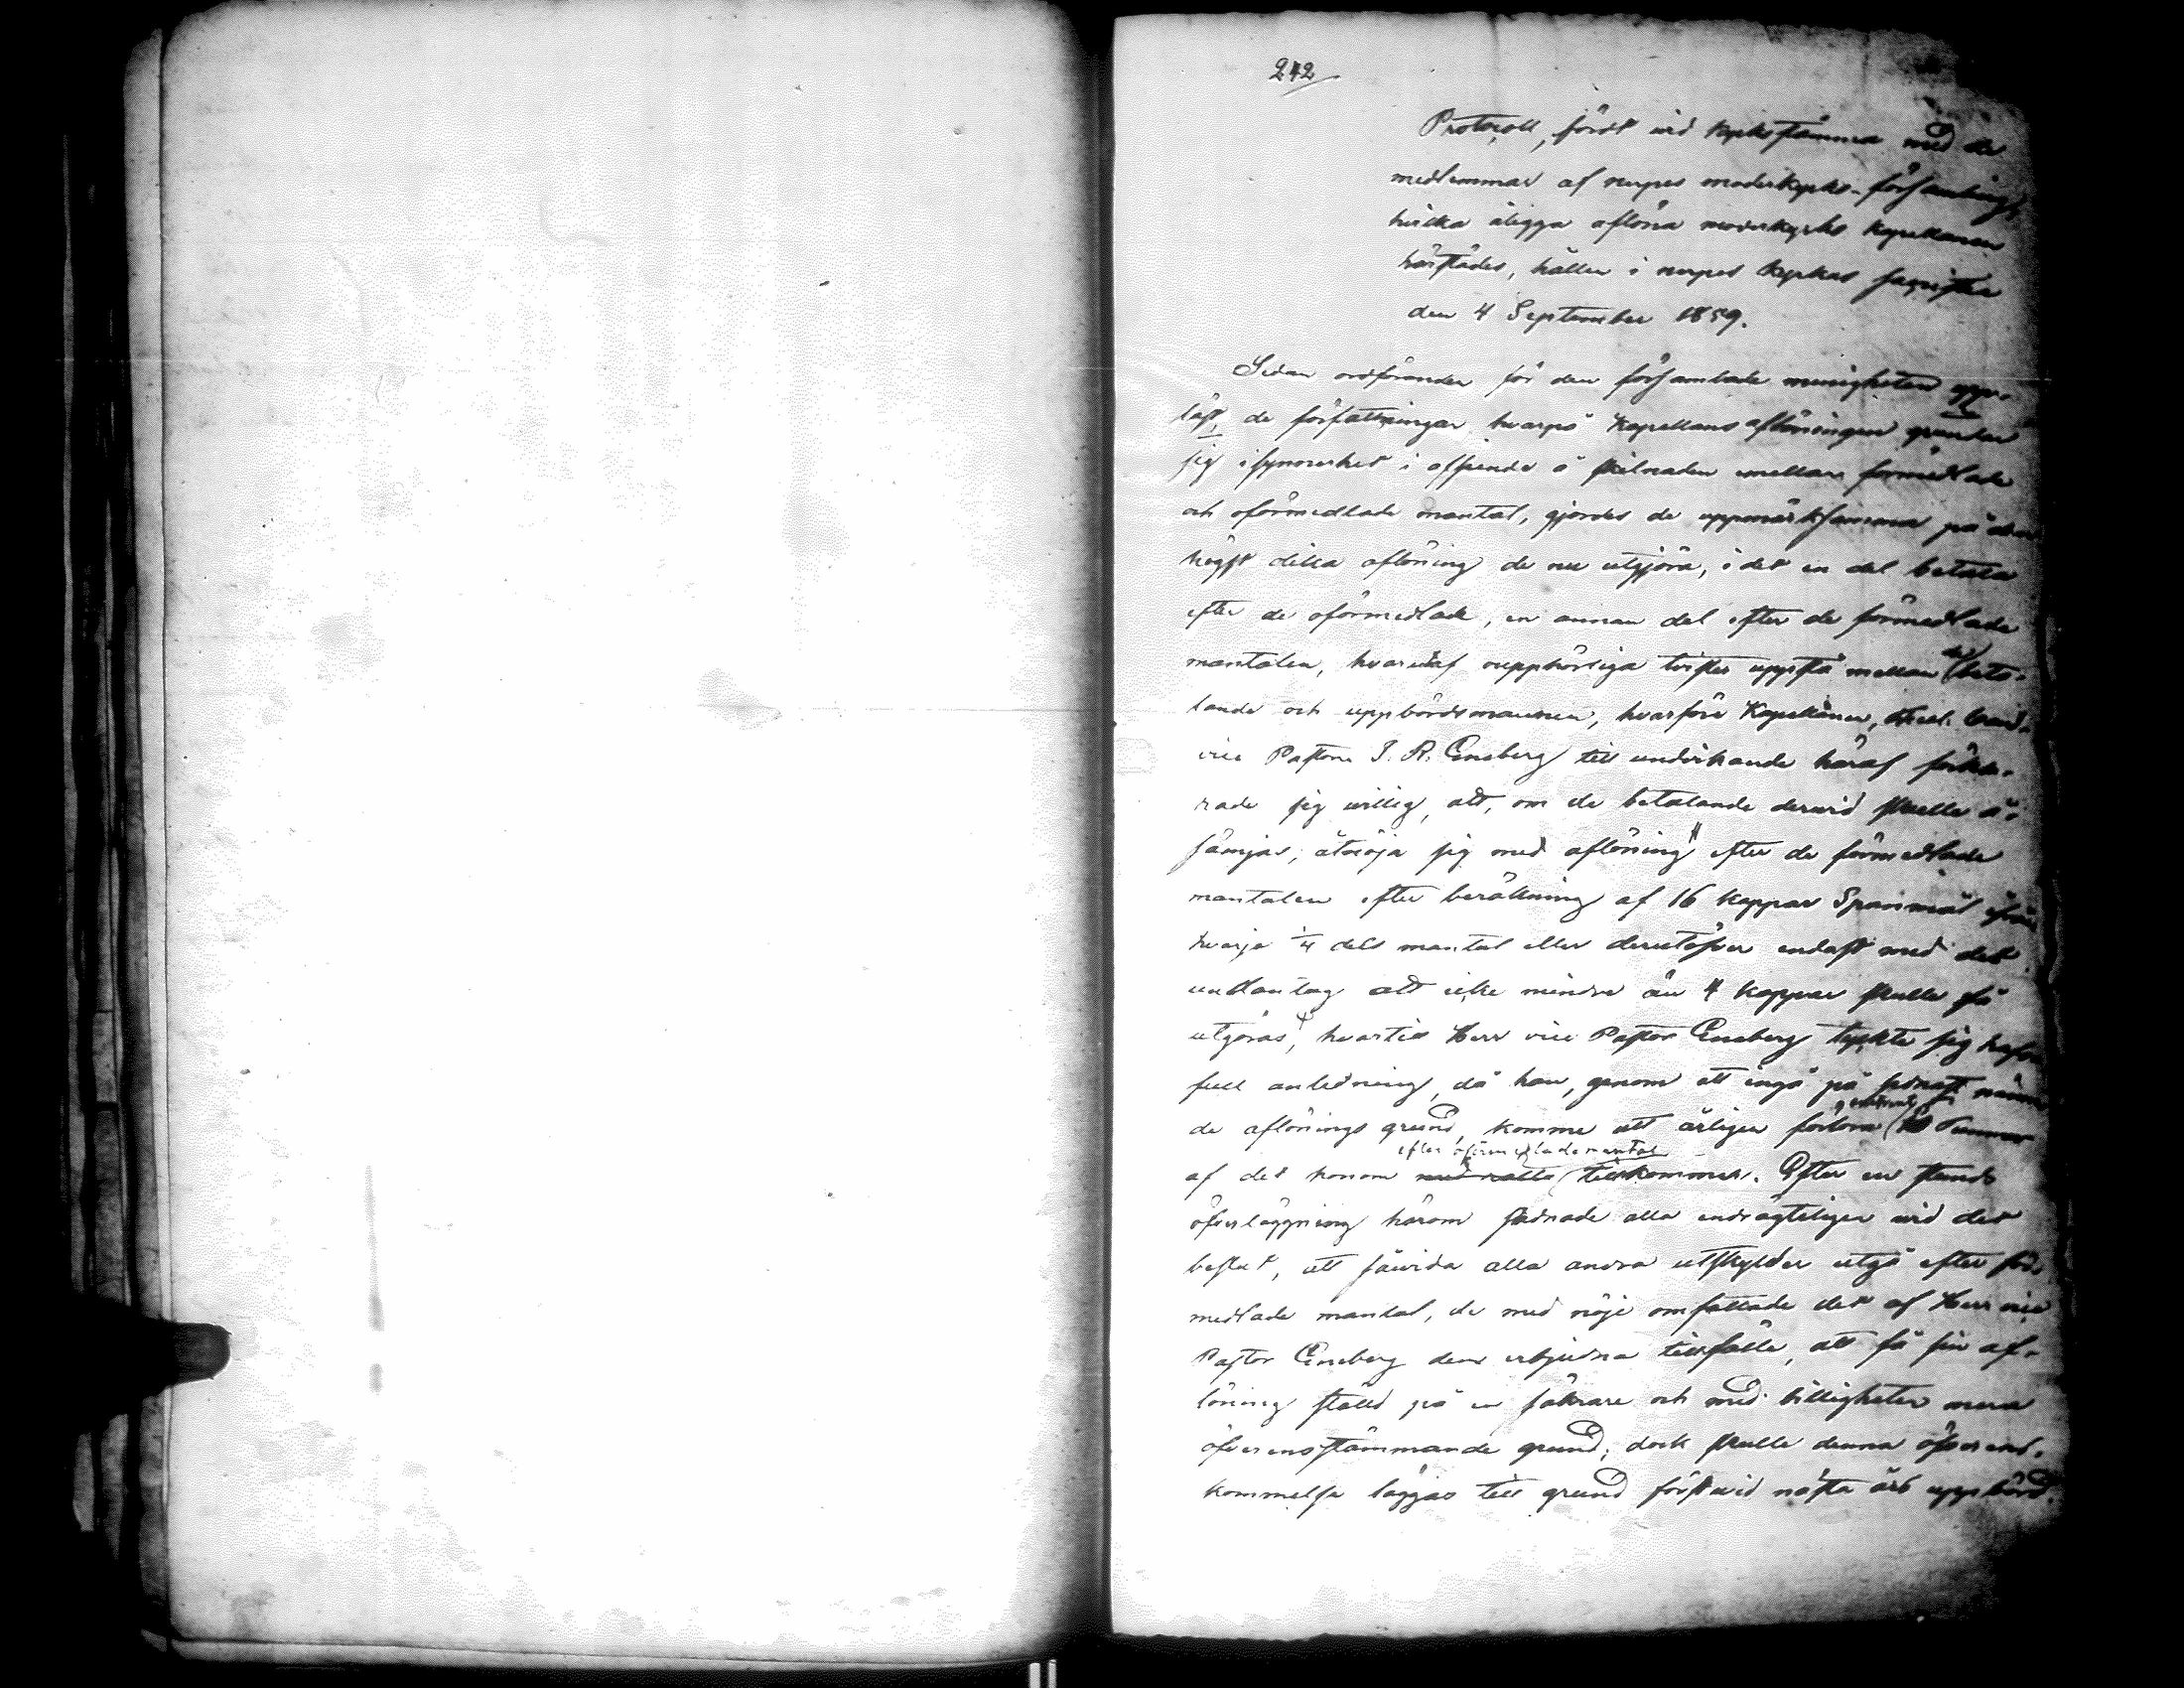 242
Protocoll, fördt wid kyrkostämma med de
medlemmar af nerpes moderkyrko-församling,
hvilka åligga aflöna moderkyrko Kapellanen
härstädes, hållen i nerpes Kyrkas sacristia
den 4 September 1859.
Sedan ordföranden för den församlade menigheten upp-
läst, de författningar hvarpå Kapellans aflöningen grundar
sig isynnerhet i afseende å skilnaden emellan förmedlade
och oförmedlade mantal, gjordes de uppmärksamma på den
högst olika aflöning de nu utgjöra, i det en del betala
efter de oförmedlade, en annan del efter de förmedlade
mantalen, hvaraf oupphörliga tvister uppstå mellan de beta-
lande och uppbördsmannen, hvarföre Kapellanen,
vice Pastorn J. R. Eneberg till undvikande häraf förkla-
rade sig willig, att, om de betalande derwid skulle å-
sämjas, åtnöja sig med aflöning efter de förmedlade
mantalen efter beräkning af 16 kappar Spanmål ifrån
hvarje 1/4 dels mantal eller derutöfver endast med det
undantag att icke mindre än 4 kappar skulle få
utgöras, hvartill Herr vice Pastor Eneberg tyckte sig hafva
full anledning, då han, genom att ingå på sednast nämn-
de aflönings grund, komme att årligen förlora Tunnor
efter oförmedlade mantal
af det honom med rätta tillkommer. Efter en stunds
öfverläggning härom stadnade alla endrägteligen wid det
beslut, att såvida alla andra utskylder utgå efter för-
medlade mantal, de med nöje omfattade det af Herr vice
Pastor Eneberg dem erbjudna tillfälle, att få sin af-
löning ställd på en säkrare och med billigheten mera
öfverensstämmande grund; dock skulle denna öfverens-
kommelse läggas till grund först wid nästa års uppbörd.